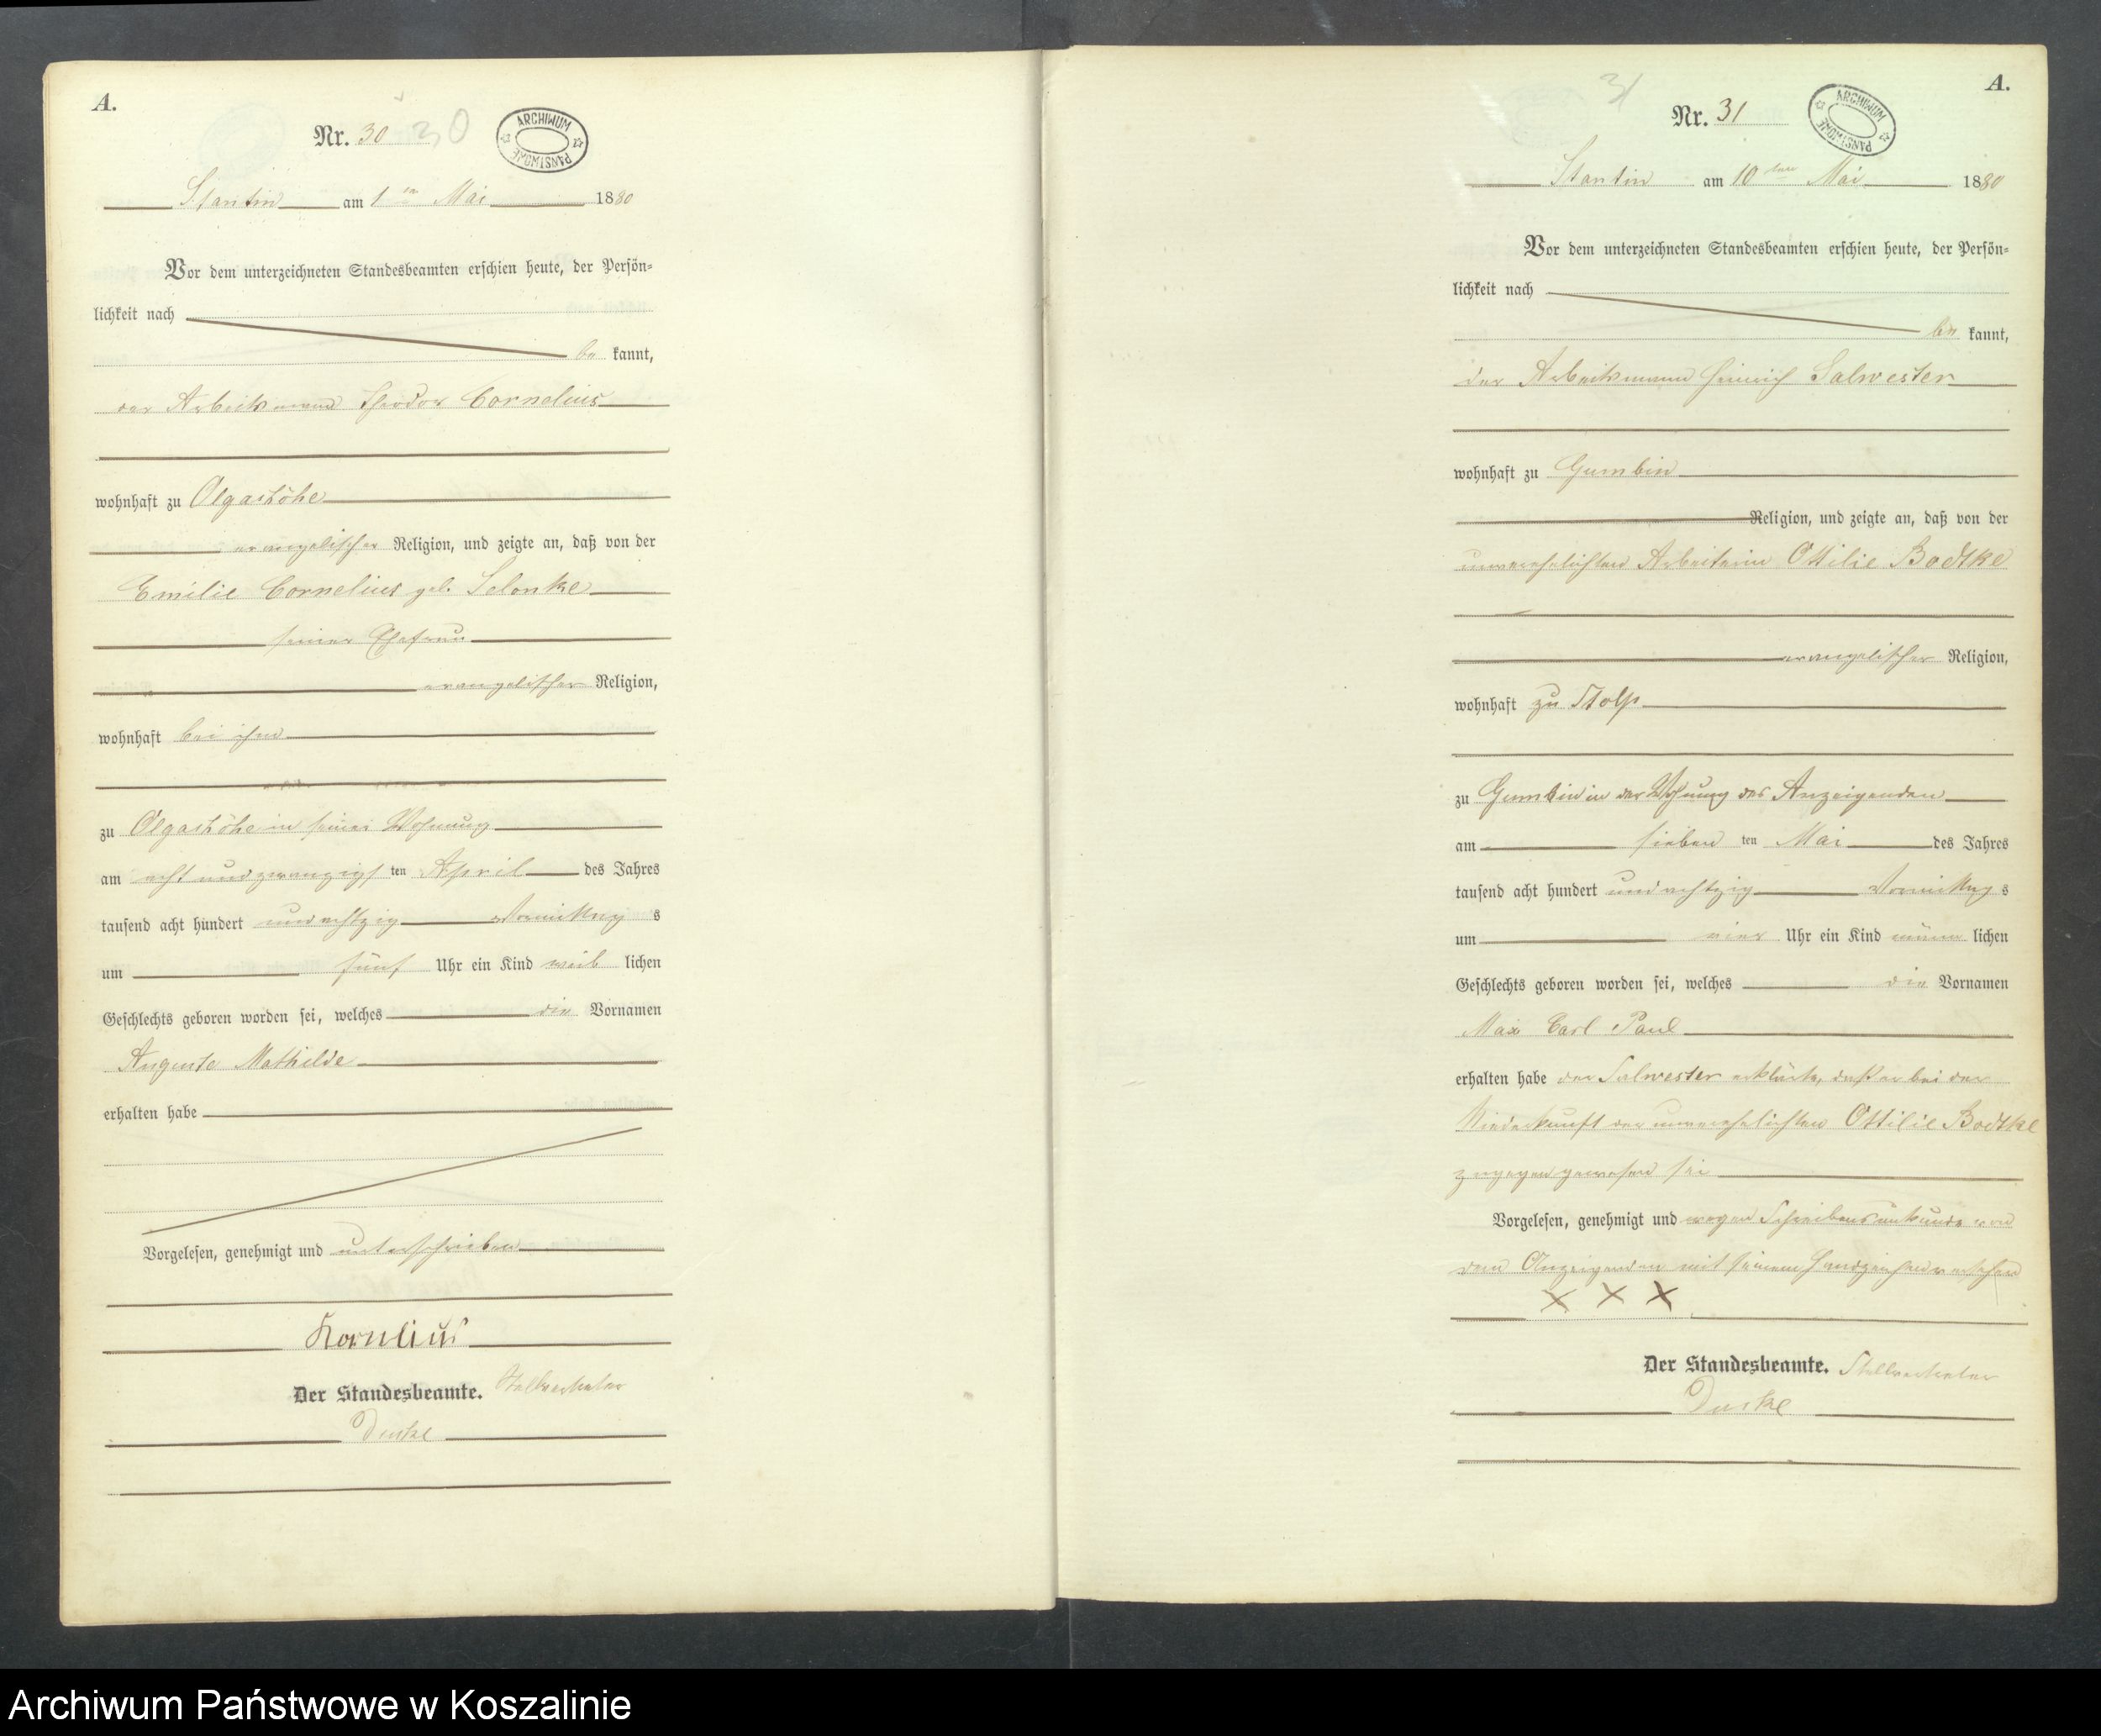 A.
Nr. 30 30
ARCHIWUM PAŃSTWOWE
Stantin am 1ten Mai 1880
Vor dem unterzeichneten Standesbeamten erschien heute, der Persön-
lichkeit nach
be kannt,
der Arbeitsmann Theodor Cornelius
wohnhaft zu Olgashöhe
evangelischer Religion, und zeigte an, daß von der
Emilie Cornelius geb. Selonke
seiner Ehefrau
evangelischer Religion,
wohnhaft bei ihm
zu Olgashöhe in seiner Wohnung
am acht und zwanzigs ten April des Jahres
tausend acht hundert und achtzig Vormittag s
um fünf Uhr ein Kind weib lichen
Geschlechts geboren worden sei, welches die Vornamen
Auguste Mathilde
erhalten habe
Vorgelesen, genehmigt und unterschrieben
Kornlius
Der Standesbeamte. Stellvertreter
A.
31
Nr. 31
ARCHIWUM PAŃSTWOWE
Stantin am 10ten Mai 1880
Vor dem unterzeichneten Standesbeamten erschien heute, der Persön-
lichkeit nach
be kannt,
der Arbeitsmann Heinrich Salwester
wohnhaft zu Gumbin
Religion, und zeigte an, daß von der
unverehelichten Arbeiterin Ottilie Bodtke
evangelischer Religion,
wohnhaft zu Stolp
zu Gumbin in der Wohnung des Anzeigenden
am sieben ten Mai des Jahres
tausend acht hundert und achtzig Vormittag s
um vier Uhr ein Kind männ lichen
Geschlechts geboren worden sei, welches die Vornamen
Max Carl Paul
erhalten habe der Salwester erklärte, daß er bei der
Niederkunft der unverehelichten Ottilie Bodtke
zugegen gewesen sei
Vorgelesen, genehmigt und wegen Schreibensunkunde von
dem Anzeigenden mit seinem Handzeichen versehen
X X X
Der Standesbeamte. Stellvertreter
Archiwum Państwowe w Koszalinie